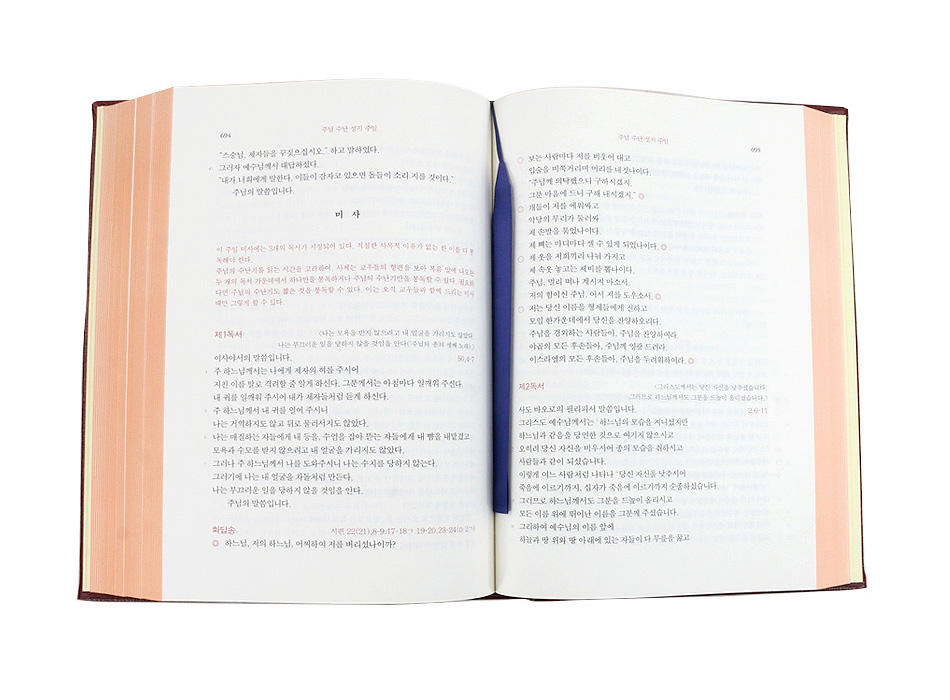 694
주님 수난 성지 주일
"스승님, 제자들을 꾸짖으십시오." 하고 말하였다.
그러자 예수님께서 대답하셨다.
"내가 너희에게 말한다. 이들이 잠자코 있으면 돌들이 소리 지를 것이다."
주님의 말씀입니다.
미 사
이 주일 미사에는 3개의 독서가 지정되어 있다. 적절한 사목적 이유가 없는 한 이를 다 봉
독해야 한다.
주님의 수난기를 읽는 시간을 고려하여, 사제는 교우들의 형편을 보아 복음 앞에 나오는
두 개의 독서 가운데에서 하나만을 봉독하거나 주님의 수난기만을 봉독할 수 있다. 필요하
다면 주님의 수난기도 짧은 것을 봉독할 수 있다. 이는 오직 교우들과 함께 드리는 미사
때만 그렇게 할 수 있다.
제1독서
〈나는 모욕을 받지 않으려고 내 얼굴을 가리지도 않았다.
나는 부끄러운 일을 당하지 않을 것임을 안다('주님의 종'의 셋째 노래).〉
이사야서의 말씀입니다. 50,4-7
주 하느님께서는 나에게 제자의 혀를 주시어
지친 이를 말로 격려할 줄 알게 하신다. 그분께서는 아침마다 일깨워 주신다.
내 귀를 일깨워 주시어 내가 제자들처럼 듣게 하신다.
주 하느님께서 내 귀를 열어 주시니
나는 거역하지도 않고 뒤로 물러서지도 않았다.
나는 매질하는 자들에게 내 등을, 수염을 잡아 뜯는 자들에게 내 뺨을 내맡겼고
모욕과 수모를 받지 않으려고 내 얼굴을 가리지도 않았다.
그러나 주 하느님께서 나를 도와주시니 나는 수치를 당하지 않는다.
그러기에 나는 내 얼굴을 차돌처럼 만든다.
나는 부끄러운 일을 당하지 않을 것임을 안다.
주님의 말씀입니다.
화답송
시편 22(21),8-9.17-18ㄱ.19-20.23-24(◎ 2ㄱ)
◎ 하느님, 저의 하느님, 어찌하여 저를 버리셨나이까?
주님 수난 성지 주일
695
○ 보는 사람마다 저를 비웃어 대고
입술을 비쭉거리며 머리를 내젓나이다.
"주님께 의탁했으니 구하시겠지.
그분 마음에 드니 구해 내시겠지." ◎
○ 개들이 저를 에워싸고
악당의 무리가 둘러싸
제 손발을 묶었나이다.
제 뼈는 마디마디 셀 수 있게 되었나이다. ◎
○ 제 옷을 저희끼리 나눠 가지고
제 속옷 놓고는 제비를 뽑나이다.
주님, 멀리 떠나 계시지 마소서.
저의 힘이신 주님, 어서 저를 도우소서. ◎
○ 저는 당신 이름을 형제들에게 전하고
모임 한가운데에서 당신을 찬양하오리다.
주님을 경외하는 사람들아, 주님을 찬양하여라.
야곱의 모든 후손들아, 주님께 영광 드려라.
이스라엘의 모든 후손들아, 주님을 두려워하여라. ◎
제2독서
〈그리스도께서는 당신 자신을 낮추셨습니다.
그러므로 하느님께서도 그분을 드높이 올리셨습니다.〉
사도 바오로의 필리피서 말씀입니다. 2,6-11
그리스도 예수님께서는 하느님의 모습을 지니셨지만
하느님과 같음을 당연한 것으로 여기지 않으시고
오히려 당신 자신을 비우시어 종의 모습을 취하시고
사람들과 같이 되셨습니다.
이렇게 여느 사람처럼 나타나 당신 자신을 낮추시어
죽음에 이르기까지, 십자가 죽음에 이르기까지 순종하셨습니다.
그러므로 하느님께서도 그분을 드높이 올리시고
모든 이름 위에 뛰어난 이름을 그분께 주셨습니다.
그리하여 예수님의 이름 앞에
하늘과 땅 위와 땅 아래에 있는 자들이 다 무릎을 꿇고